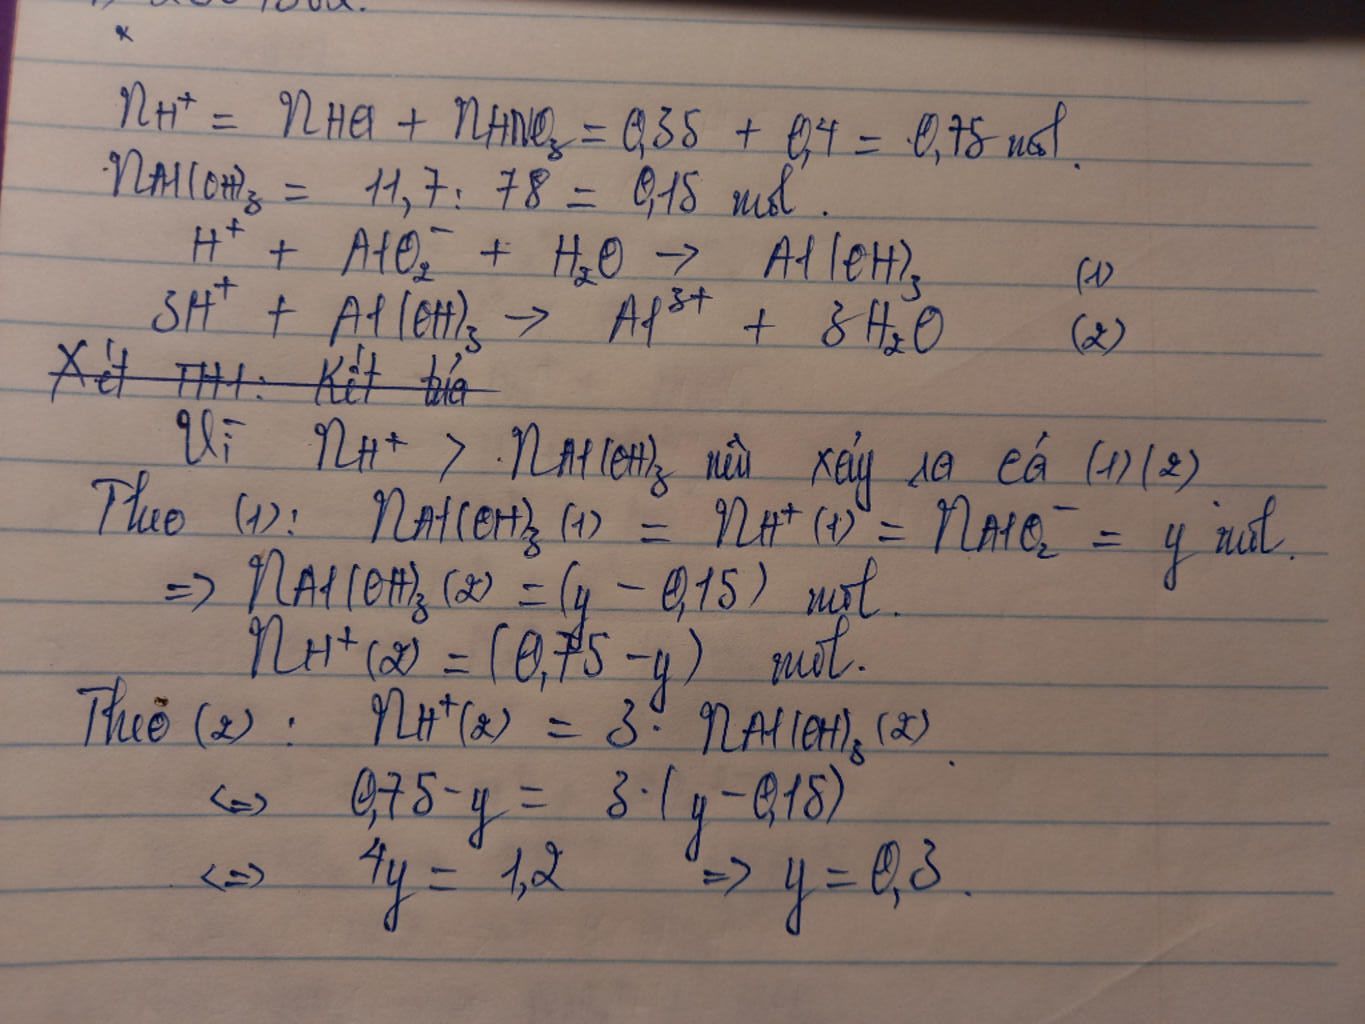 n_{H^+} = n_{HCl} + n_{HNO_3} = 0,35 + 0,4 = 0,75 mol.
n_{Al(OH)_3} = 11,7 : 78 = 0,15 mol.
H^+ + AlO_2^- + H_2O → Al(OH)_3 (1)
3H^+ + Al(OH)_3 → Al^{3+} + 3H_2O (2)
Xét TH1: Kết tủa
Vì n_{H^+} > n_{Al(OH)_3} nên xảy ra cả (1) (2)
Theo (1): n_{Al(OH)_3} (1) = n_{H^+} (1) = n_{AlO_2^-} = y mol.
=> n_{Al(OH)_3} (2) = (y - 0,15) mol.
n_{H^+} (2) = (0,75 - y) mol.
Theo (2): n_{H^+} (2) = 3. n_{Al(OH)_3} (2).
<=> 0,75 - y = 3.(y - 0,15)
<=> 4y = 1,2 => y = 0,3.